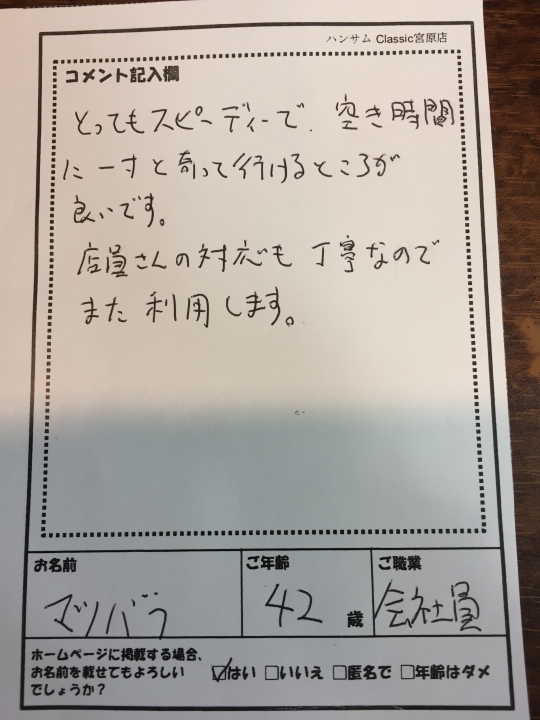 ハンサム Classic宮原店
コメント記入欄
とってもスピーディーで、空き時間
に一寸と寄って行けるところが
良いです。
店員さんの対応も丁寧なので
また利用します。
お名前
マツバラ
ご年齢
42 歳
ご職業
会社員
ホームページに掲載する場合、
お名前を載せてもよろしい
でしょうか？
☑はい □いいえ □匿名で □年齢はダメ